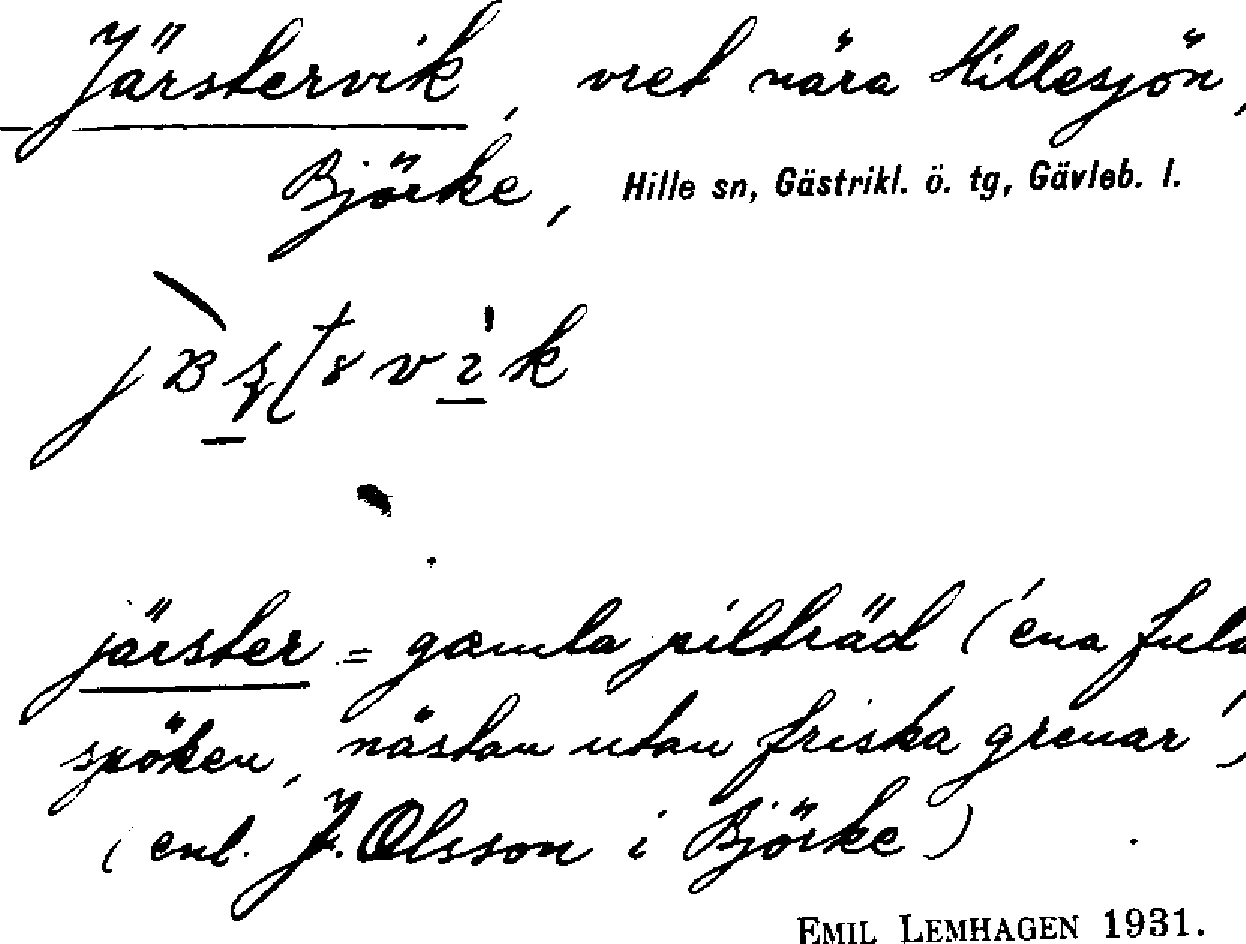 Järstervik, vret nära Hillesjön,
Björke, Hille sn, Gästrikl. ö. tg, Gävleb. l.
järster = gamla pilträd ('ena fula
spöken, nästan utan friska grenar')
(enl. J. Olsson i Björke)
EMIL LEMHAGEN 1931.